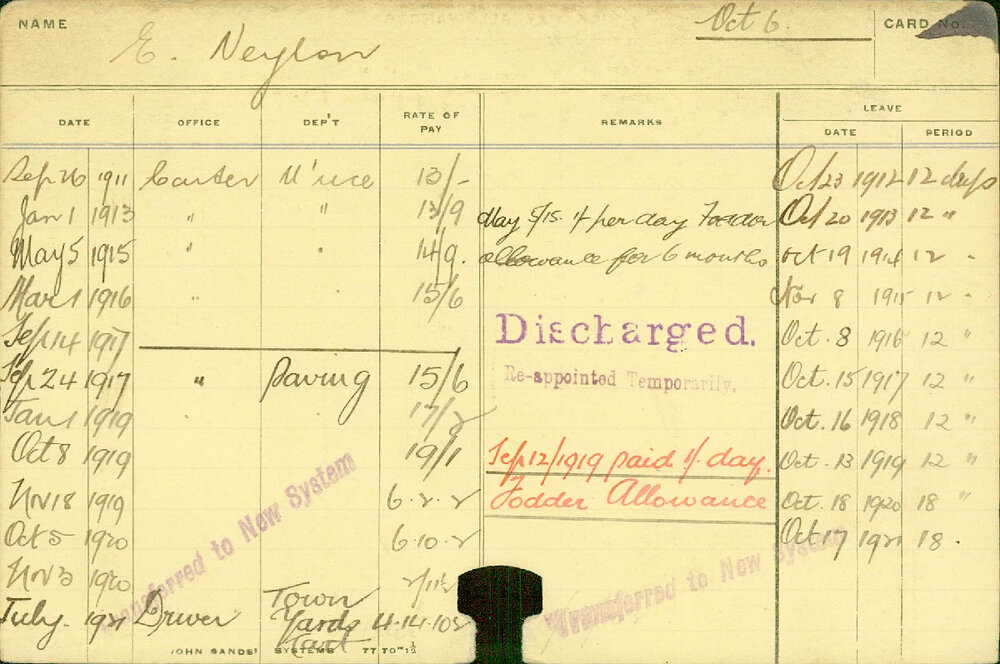 NAME E. Neylon Oct 6. CARD No.
DATE OFFICE DEP'T RATE OF PAY REMARKS LEAVE
DATE PERIOD
Sep 26 1911 Carter 13/- Oct 23 1912 12 days
Jan 1 1913 " " 13/9 May 5/15. 1/ per day Fodder Oct 20 1913 12 "
May 5 1915 " " 14/9. allowance for 6 months Oct 19 1914 12 "
Mar 1 1916 " 15/6 Nov 8 1915 12 "
Sep 14 1917 Discharged. Oct. 8 1916 12 "
Sep 24 1917 " Paving 15/6 Re-appointed Temporarily. Oct. 15 1917 12 "
Jan 1 1919 17/2 Oct. 16 1918 12 "
Oct 8 1919 19/1 Sep 12/1919 paid 1/. day. Oct. 13 1919 12 "
Nov 18 1919 6.2.2 Fodder Allowance Oct. 18 1920 18 "
Oct 5 1920 6.10.2 Oct 17 1921 18.
Nov 3 1920
July. 1921 Driver Town Yards 4.14.10½
Transferred to New System
Transferred to New System
JOHN SANDS' SYSTEMS